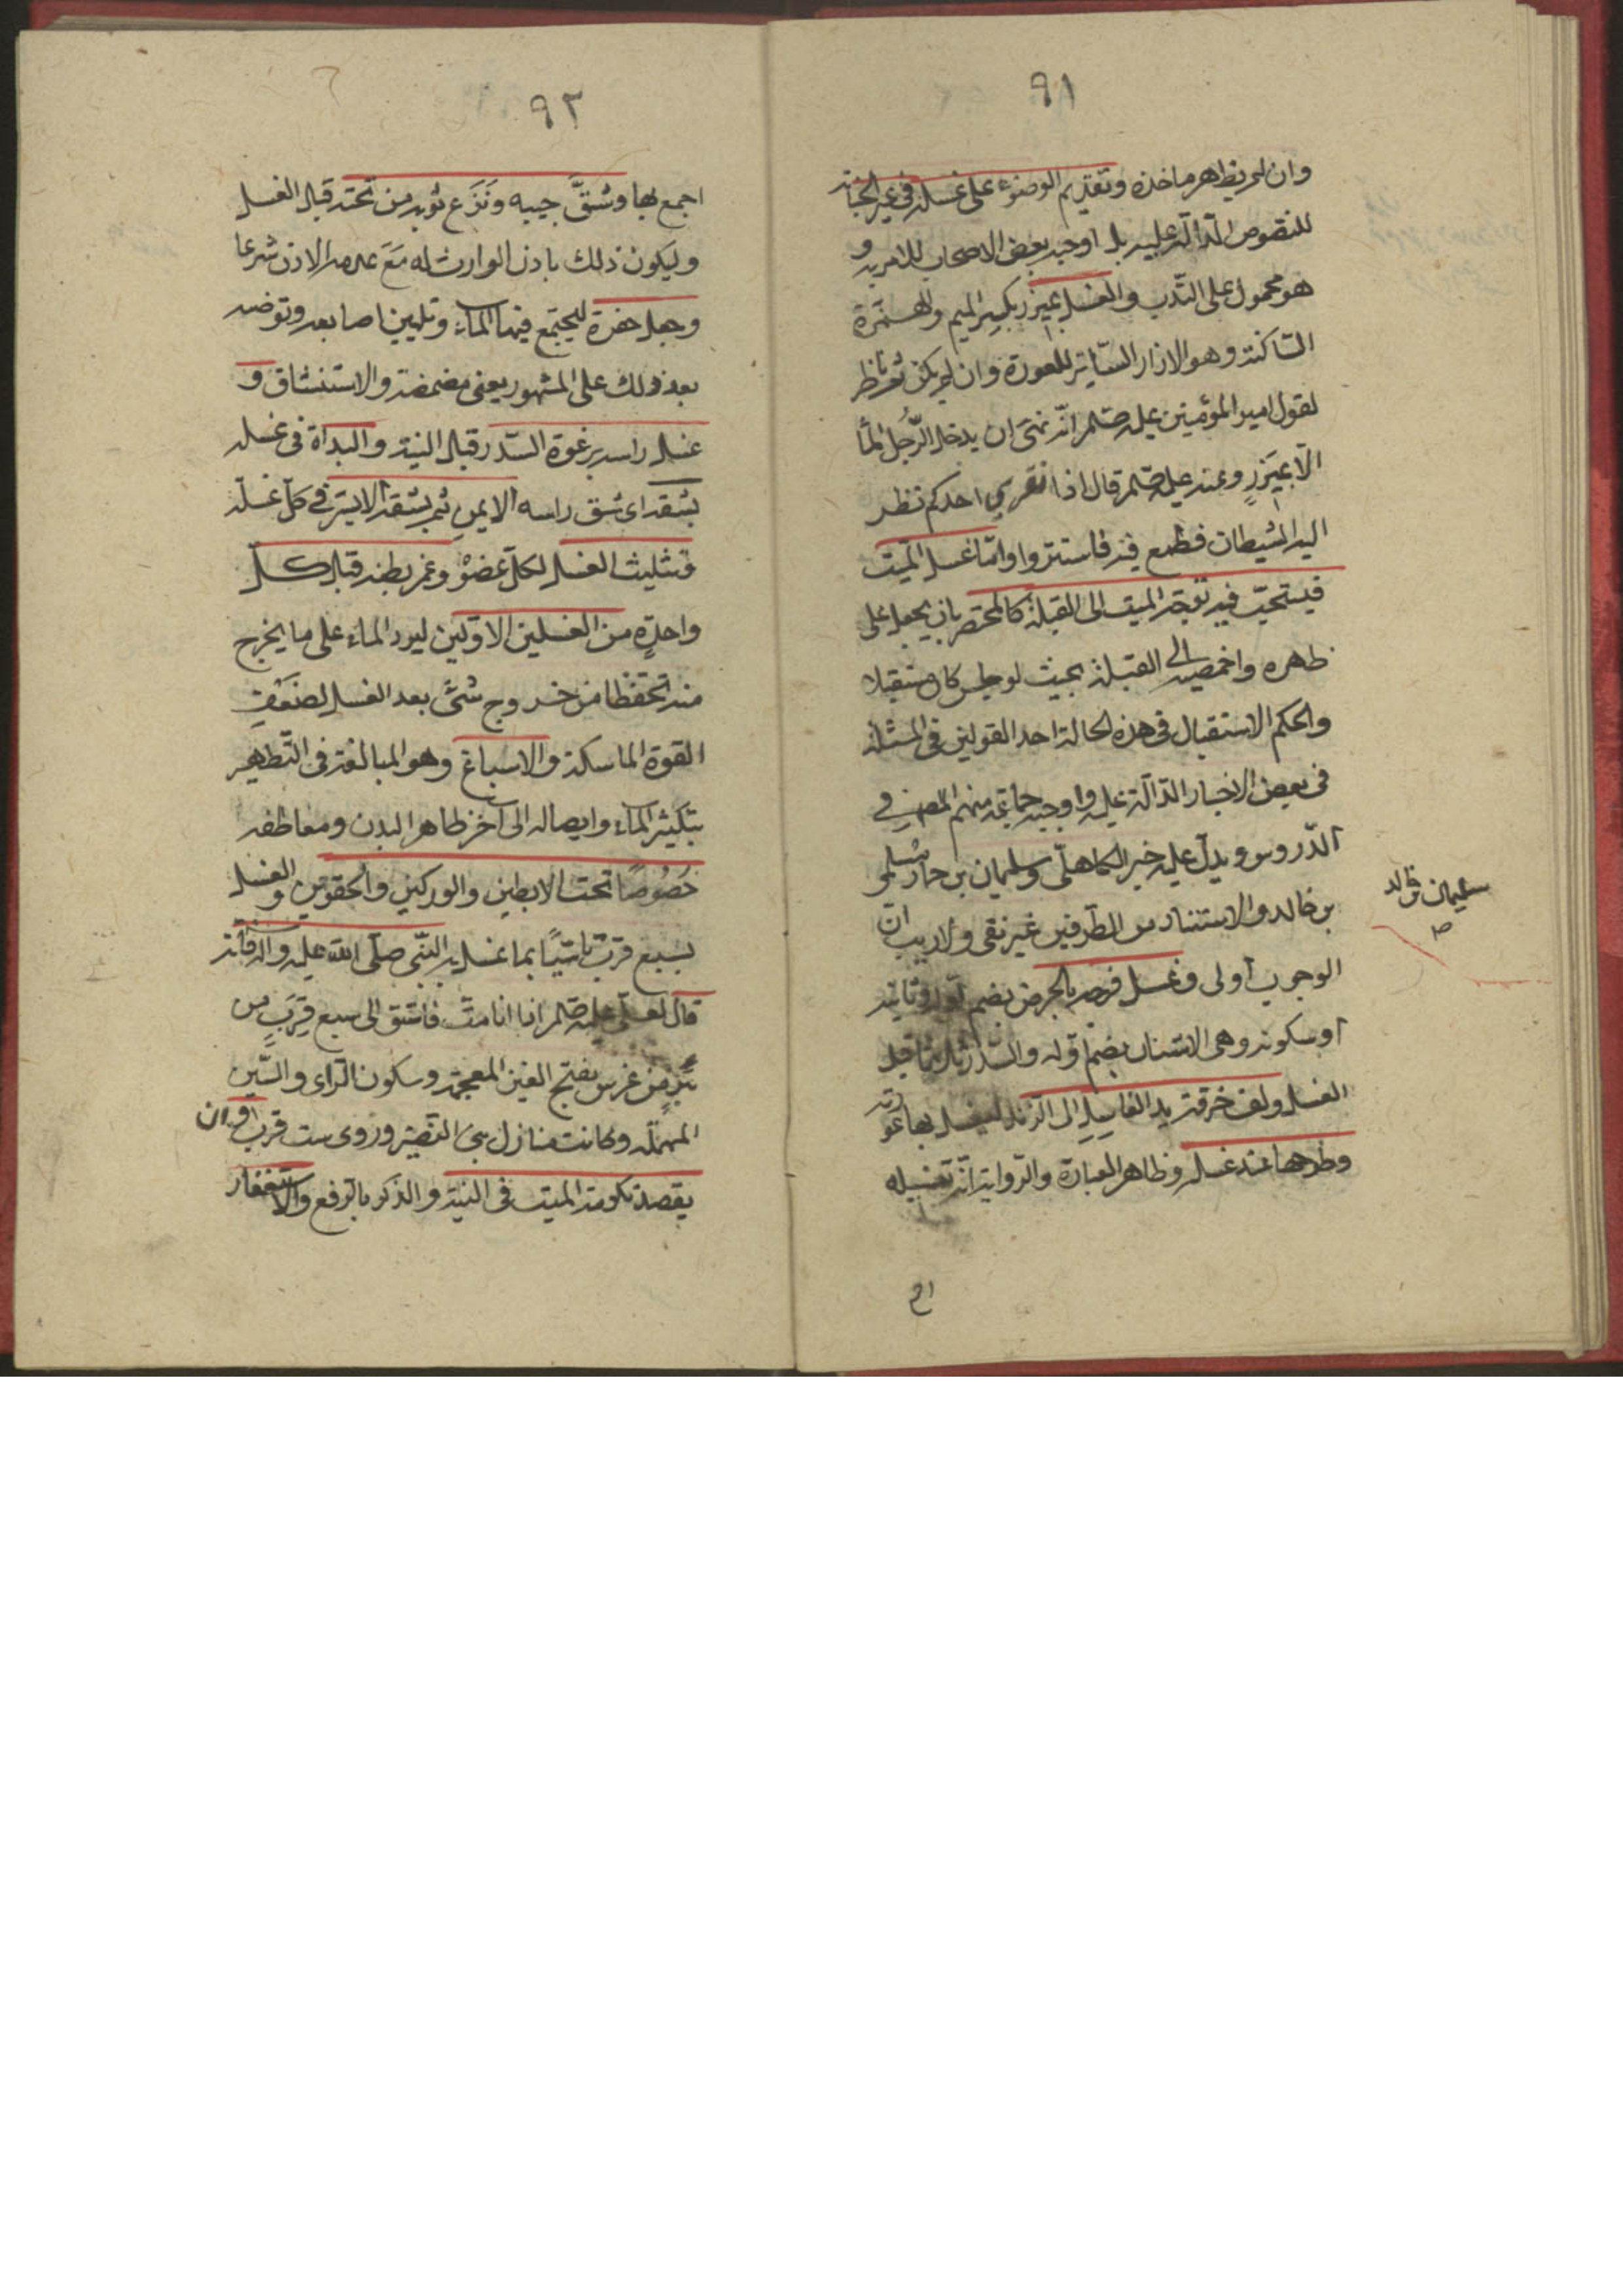 ٩١
وان لم يظهر ماخذه وتقديم الوضوء على غسله في غير الجنابة
للنصوص الدالة عليه بل اوجبه بعض الاصحاب للامر به و
هو محمول على الندب والغسل بميزر بكسر الميم والهمزة
الساكنة وهو الازار الساتر للعورة وان لم يكن ثم ناظر
لقول امير المؤمنين عليه صلم انه نهى ان يدخل الرجل الما
الا بميزر وعنه عليه صلم قال اذا تعرى احدكم نظر
اليه الشيطان فطمع فيه فاستتروا واما غسل الميت
فيستحب فيه توجه الميت الى القبلة كالمحتضر بان يجعل على
ظهره واخمصيه الى القبلة بحيث لو جلس كان مستقبلا
والحكم الاستقبال في هذه الحالة احد القولين في المسئلة
في بعض الاخبار الدالة عليه واوجبه جماعة منهم المص في
الدروس ويدل عليه خبر الكاهلي وسليمان بن حماد سلمى
بن خالد والاستناد من الطرفين غير نقى ولا ريب ان
الوجوب اولى وغسل فرجه بالحرض بضم اوله وثانيه
او سكونه وهى الاشنان بضم اوله والسدر ثلاثا قبل
الغسل ولف خرقة يد الغاسل الى الزند ليغسل بها عورته
وطرحها عند غسله وظاهر العبارة والرواية انه تغسيله
سليمان بن خالد
ص
اج
٩٢
اجمع بها وشق جيبه ونزع ثوبه من تحته قبل الغسل
وليكون ذلك باذن الوارث له مع عدم الاذن شرعا
وجعل حفرة ليجتمع فيها الماء وتليين اصابعه وتوضيه
بعد ذلك على المشهور يعنى مضمضة والاستنشاق و
غسل راسه برغوة السدر قبل النية والبداة في غسله
بشقه اى شق راسه الايمن ثم بشقه الايسر في كل غسلة
وتثليث الغسل لكل عضو وغمز بطنه قبل كل
واحدة من الغسلين الاولين ليرد الماء على ما يخرج
منه تحفظا من خروج شئ بعد الغسل لضعف
القوة الماسكة والاسباغ وهو المبالغة في التطهير
بتكثير الماء وايصاله الى آخر ظاهر البدن ومعاطفه
خصوصا تحت الابطين والوركين والحقوين والغسل
بسبع قرب تاسيا بما غسل به النبي صلى الله عليه واله فانه
قال لعلى عليه صلم اذا انا مت فاستق الى سبع قرب من
بئر غرس بفتح الغين المعجمة وسكون الراى والسين
المهملة وكانت منازل بنى النضير وروى ست قرب وان
يقصد تكرمة الميت في النية والذكر بالرفع والاستغفار